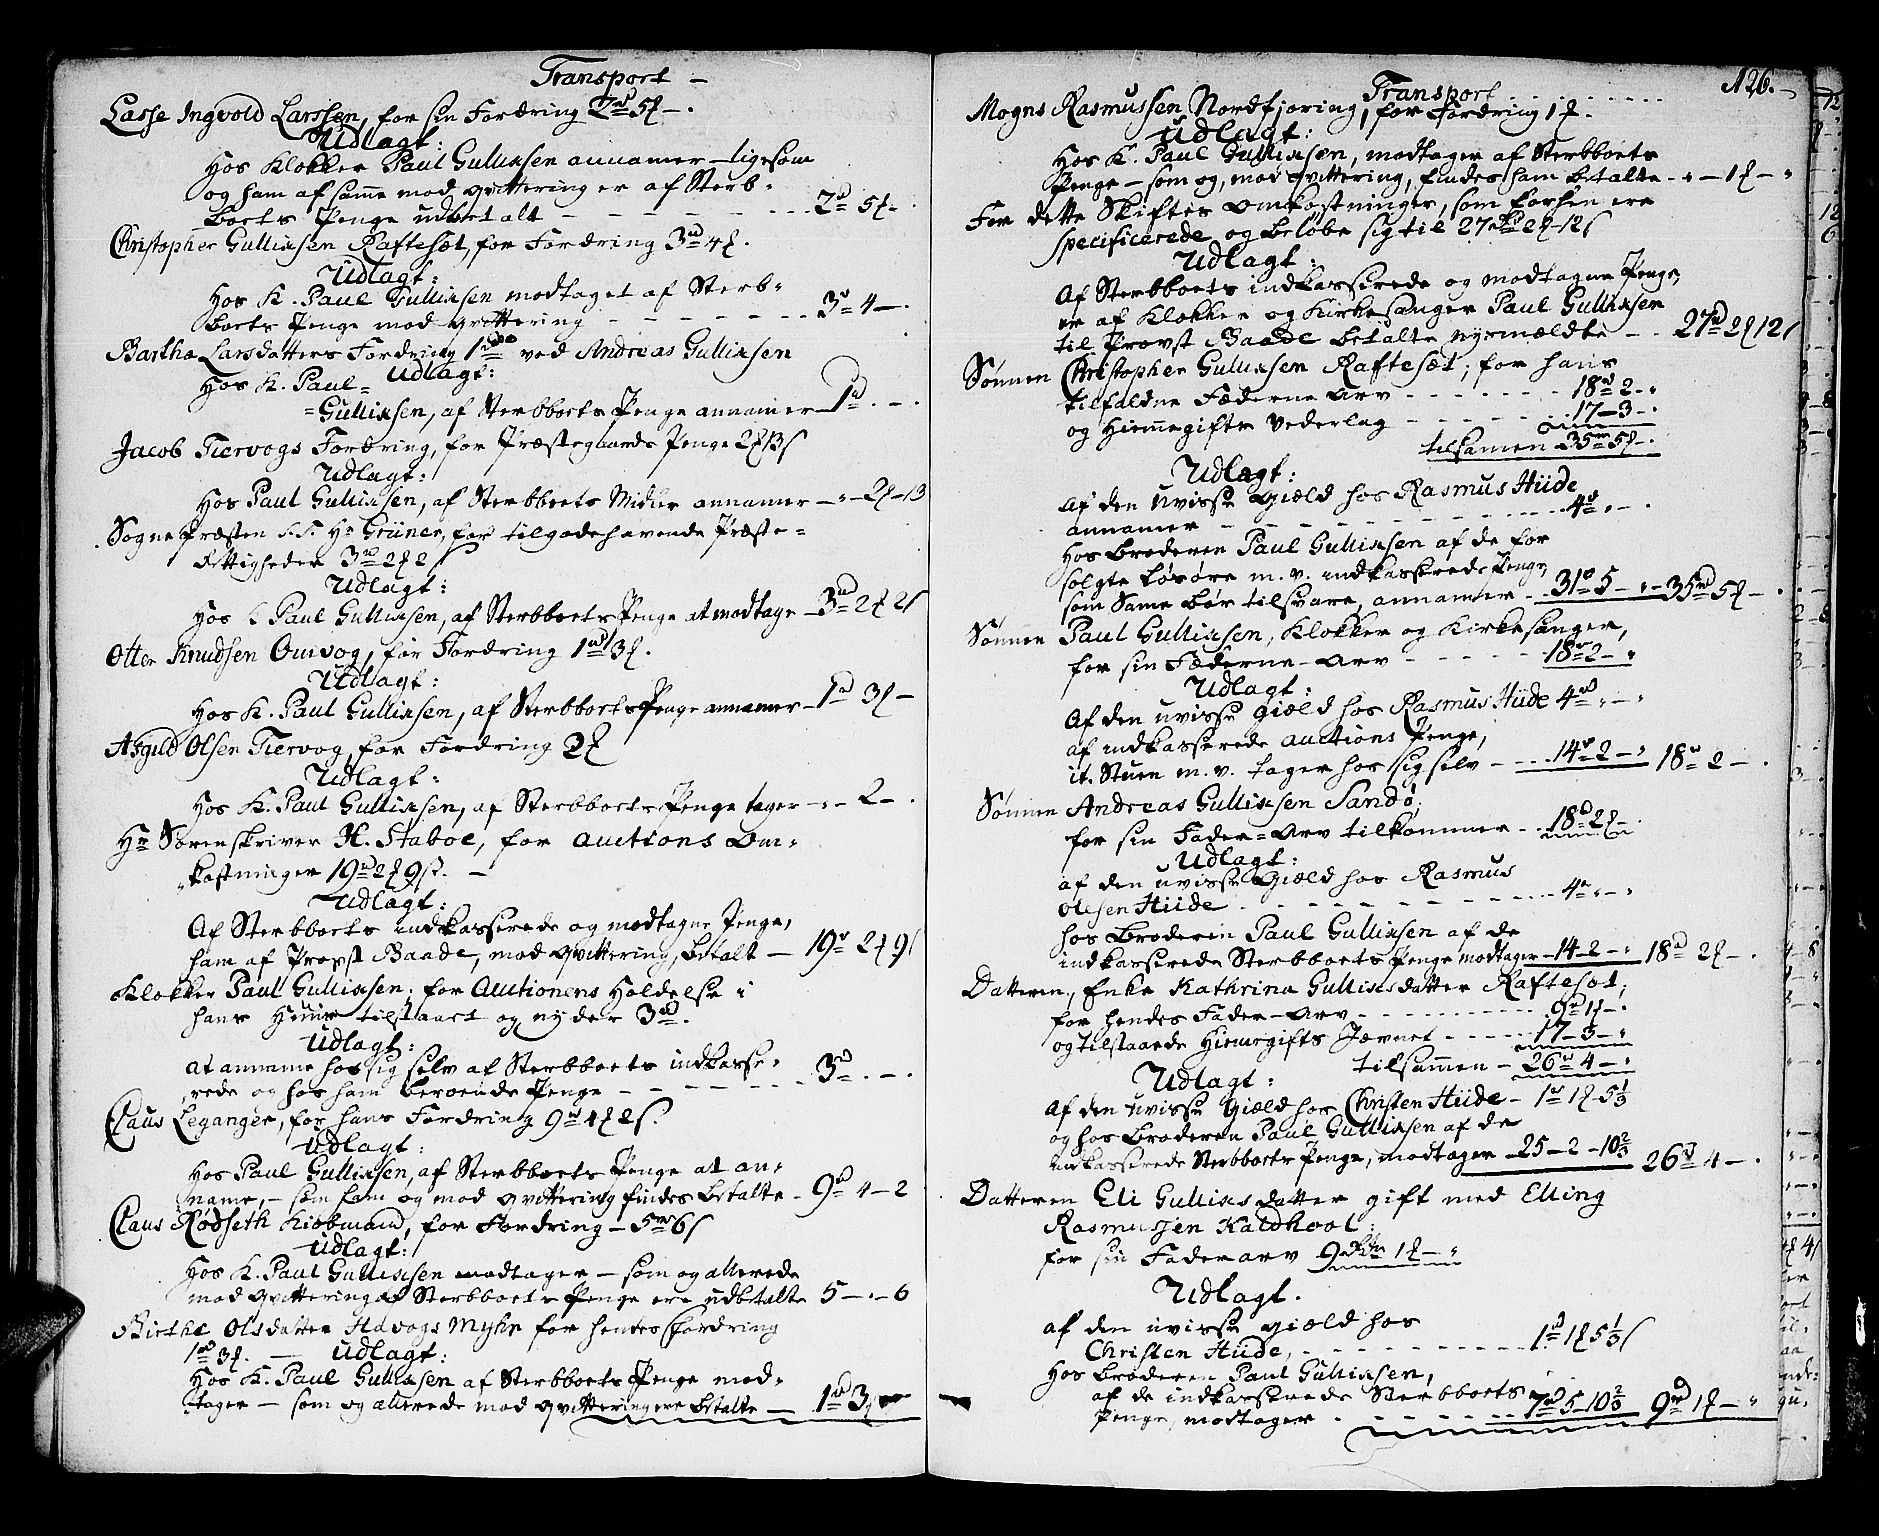 Transport –
Lasse Ingvold Larssen, for sin Fordring 2rd 5 –.
Udlagt:
Hos Klokker Paul Gullixsen annamer – ligesom
og ham af samme mod qvittering er af Sterb-
boets Penge udbetalt – – – – – – 2d 5 –.
Christopher Gullixsen Raftesæt, for Fordring 3rd 4.
Udlagt:
Hos K. Paul Gullixsen modtaget af Sterb-
boets Penge mod qvittering – – – – – 3 – 4 –.
Bartha Larsdatters Fordring 1rd ved Andreas Gullixsen
Udlagt:
Hos K. Paul =
= Gullixsen, af Sterbboets Penge annamer – 1d . – .
Jacob Tiervogs Fordring, for Præstegaards Penge 2 13
Udlagt:
Hos Paul Gullixsen, af Sterbboets Midler annamer – „ – 2 – 13
Sogne Præsten S.T. Hr Grüner, for tilgodehavende Præste-
Rettigheder 3rd 2 2
Udlagt:
Hos K Paul Gullixsen, af Sterbboets Penge at modtage – 3rd 2 2
Otter Knudsen Ourvog, for Fordring 1rd 3.
Udlagt:
Hos K. Paul Gullixsen, af Sterbboets Penge annamer – 1d 3 –
Asgild Olsen Tiervog, for Fordring 2
Udlagt:
Hos K. Paul Gullixsen, af Sterbboets Penge tager – „ – 2 – .
Hr Sorenskriver H. Staboe, for Auctions Om-
kostninger 19rd 2 9 ß. –
Udlagt:
Af Sterbboets indkasserede og modtagne Penge,
ham af Provst Baade, mod qvittering, betalt – 19 2 9
Klokker Paul Gullixsen, for Auctionens Holdelse i
hans Huus tilstaaet og nyder 3rd.
Udlagt:
at annamme hos sig selv af Sterbboets indkasse-
rede og hos ham beroende Penge – – – – – 3rd . – .
Claus Leganger, for hans Fordring 9rd 4 2.
Udlagt:
Hos Paul Gullixsen, af Sterbboets Penge at an-
name, – som ham og mod qvittering findes betalte – 9d 4 – 2
Claus Rødseth Kiøbmand, for Fordring – 5rd 6
Udlagt:
Hos K. Paul Gullixsen modtager – som og allerede
mod qvittering af Sterbboets Penge ere udbetalte 5 – . – 6
Birthe Olsdatter Myhr for hendes Fordring
1rd 3. – Udlagt:
Hos K. Paul Gullixsen af Sterbboets Penge mod-
tager – som og allerede mod qvittering ere betalte – 1rd 3
126. –
Transport
Mogns Rasmussen Nordfjøring, for Fordring 1.
Udlagt:
Hos K. Paul Gullixsen, modtager af Sterbboets
Penge – som og, mod qvittering, findes ham betalte – „ – 1 – „
For dette Skiftes Omkostninger, som forhen ere
specificerede og beløbe sig til 27rd 2 – 12
Udlagt:
Af Sterbboets indkasserede og modtagne Penge,
er af Klokker og Kirkesanger Paul Gullixsen
til Provst Baade betalte nysmældte – . 27rd 2 12
Sønnen Christopher Gullixsen Raftesæt; for hans
tilfaldne Fæderne Arv – – – – – – 18rd 2 – „
og Hiemmegifts Vederlag – – – – – 17 – 3 – .
tilsamen 35rd 5 – .
Udlagt:
Af den uvisse Giæld hos Rasmus Hiide
annamer – – – – – – – – – 4rd „ – .
Hos Broderen Paul Gullixsen af de for
solgte Løsøre m. v. indkasserede Penge,
som Same bør tilsvare, annamer – 31 5 – „ – 35rd 5 – .
Sønnen Paul Gullixsen, Klokker og Kirkesanger,
for sin Fæderne – Arv – – – – – 18 2 – „
Udlagt:
Af den uvisse Giæld hos Rasmus Hiide 4rd „ – „
af indkasserede Auctions Penge,
it. Stuen m. v. tager hos sig selv – – . . 14 2 – „ 18 2 – .
Sønnen Andreas Gullixsen Sandø,
for sin Fader = Arv tilkommer – . 18d 2 – .
Udlagt:
af den uvisse Giæld hos Rasmus
Olesen Hiide . – – – – – – – – . . . 4 „ – „
hos Broderen Paul Gullixsen af de
indkasserede Sterbboets Penge modtager – 14 – 2 – „ 18d 2 – .
Datteren, Enke Kathrina Gullixsdatter Raftesæt,
for hendes Fader – Arv – – – – – – – 9rd 1 – .
og tilstaaede Hiemegifts Jævnet – – – – 17 – 3 – „
tilsammen – 26rd 4 – „
Udlagt:
Af den uvisse Giæld hos Christen Hiide – 1rd 1 – 5 1/3
og hos Broderen Paul Gullixsen af de
indkasserede Sterbboets Penge, modtager – 25 – 2 – 10 2/3 26rd 4 – .
Datteren Eli Gullixsdatter gift med Elling
Rasmussen Kaldhool:
for sin Fader arv 9 1 – „
Udlagt.
af den uvisse Giæld hos
Christen Hiide, – – – – – – – – – – 1rd 1 5 1/3
Hos Broderen Paul Gullixsen,
af de indkasserede Sterbboets
Penge, modtager . – – – – – 7rd 5 – 10 2/3 9rd 1 – „